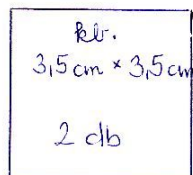 kb.
3,5 cm × 3,5 cm
2 db